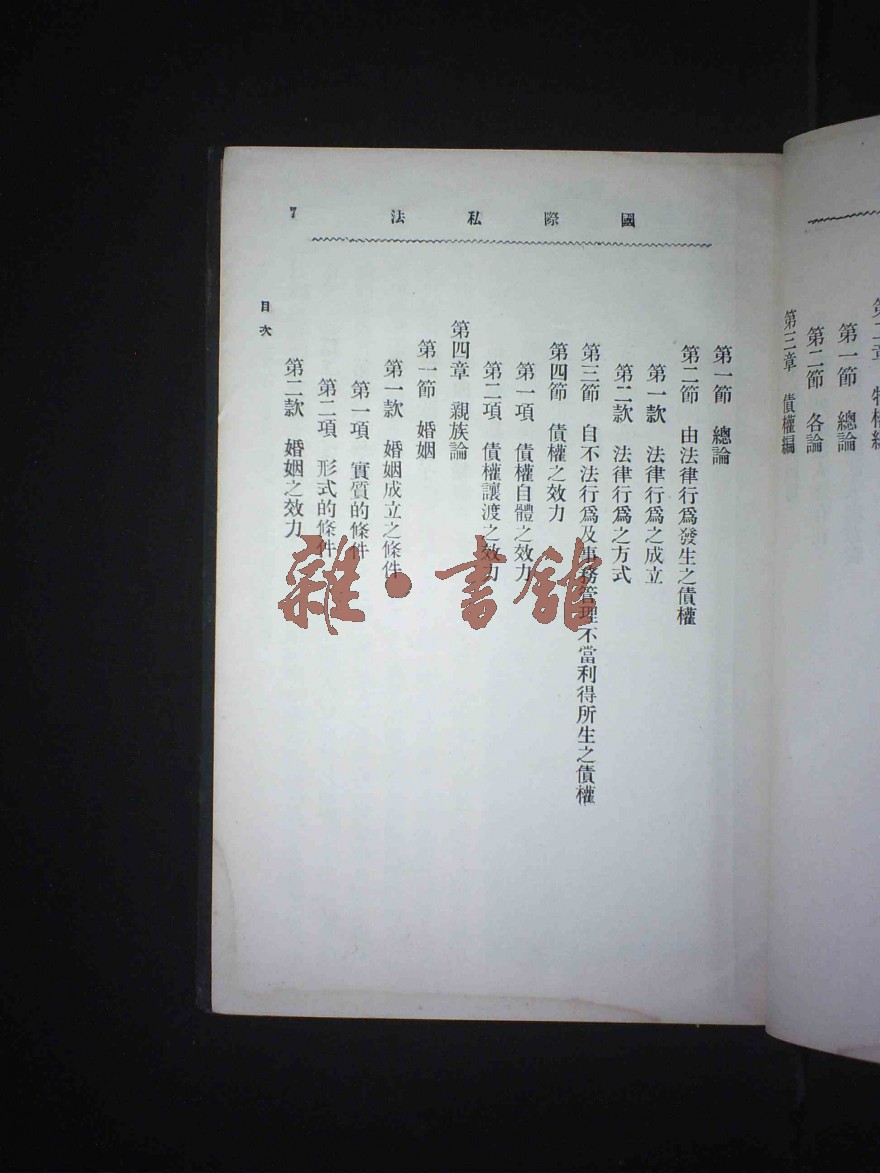 第二章 物權編
第一節 總論
第二節 各論
第三章 債權編
國際私法
7
第一節 總論
第二節 由法律行爲發生之債權
第一款 法律行爲之成立
第二款 法律行爲之方式
第三節 自不法行爲及事務管理不當利得所生之債權
第四節 債權之效力
第一項 債權自體之效力
第二項 債權讓渡之效力
第四章 親族論
第一節 婚姻
第一款 婚姻成立之條件
第一項 實質的條件
第二項 形式的條件
第二款 婚姻之效力
目次
雜·書館